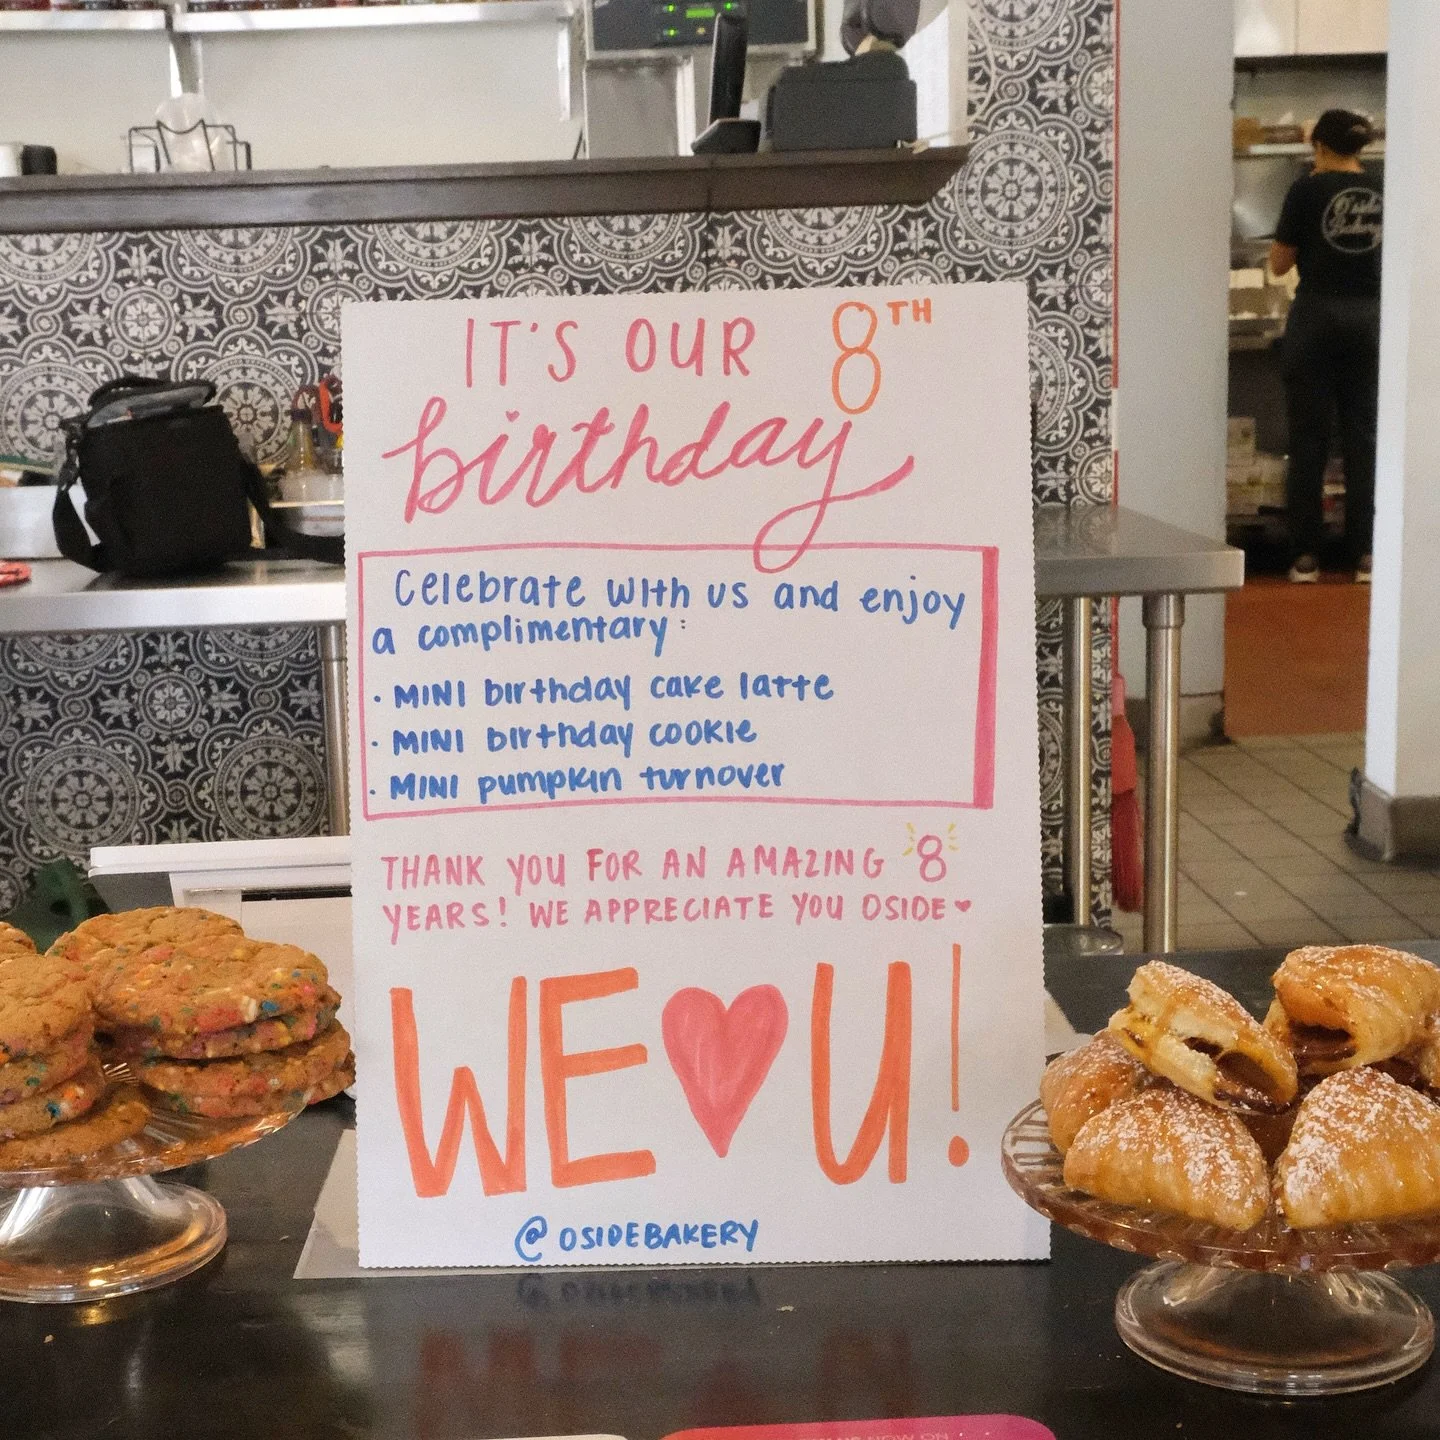 IT'S OUR 8TH
birthday
Celebrate with us and enjoy
a complimentary:
· MINI birthday cake latte
· MINI birthday cookie
· MINI pumpkin turnover
THANK YOU FOR AN AMAZING 8
YEARS! WE APPRECIATE YOU OSIDE ♥
WE ♥ U!
@OSIDEBAKERY
NOW ON